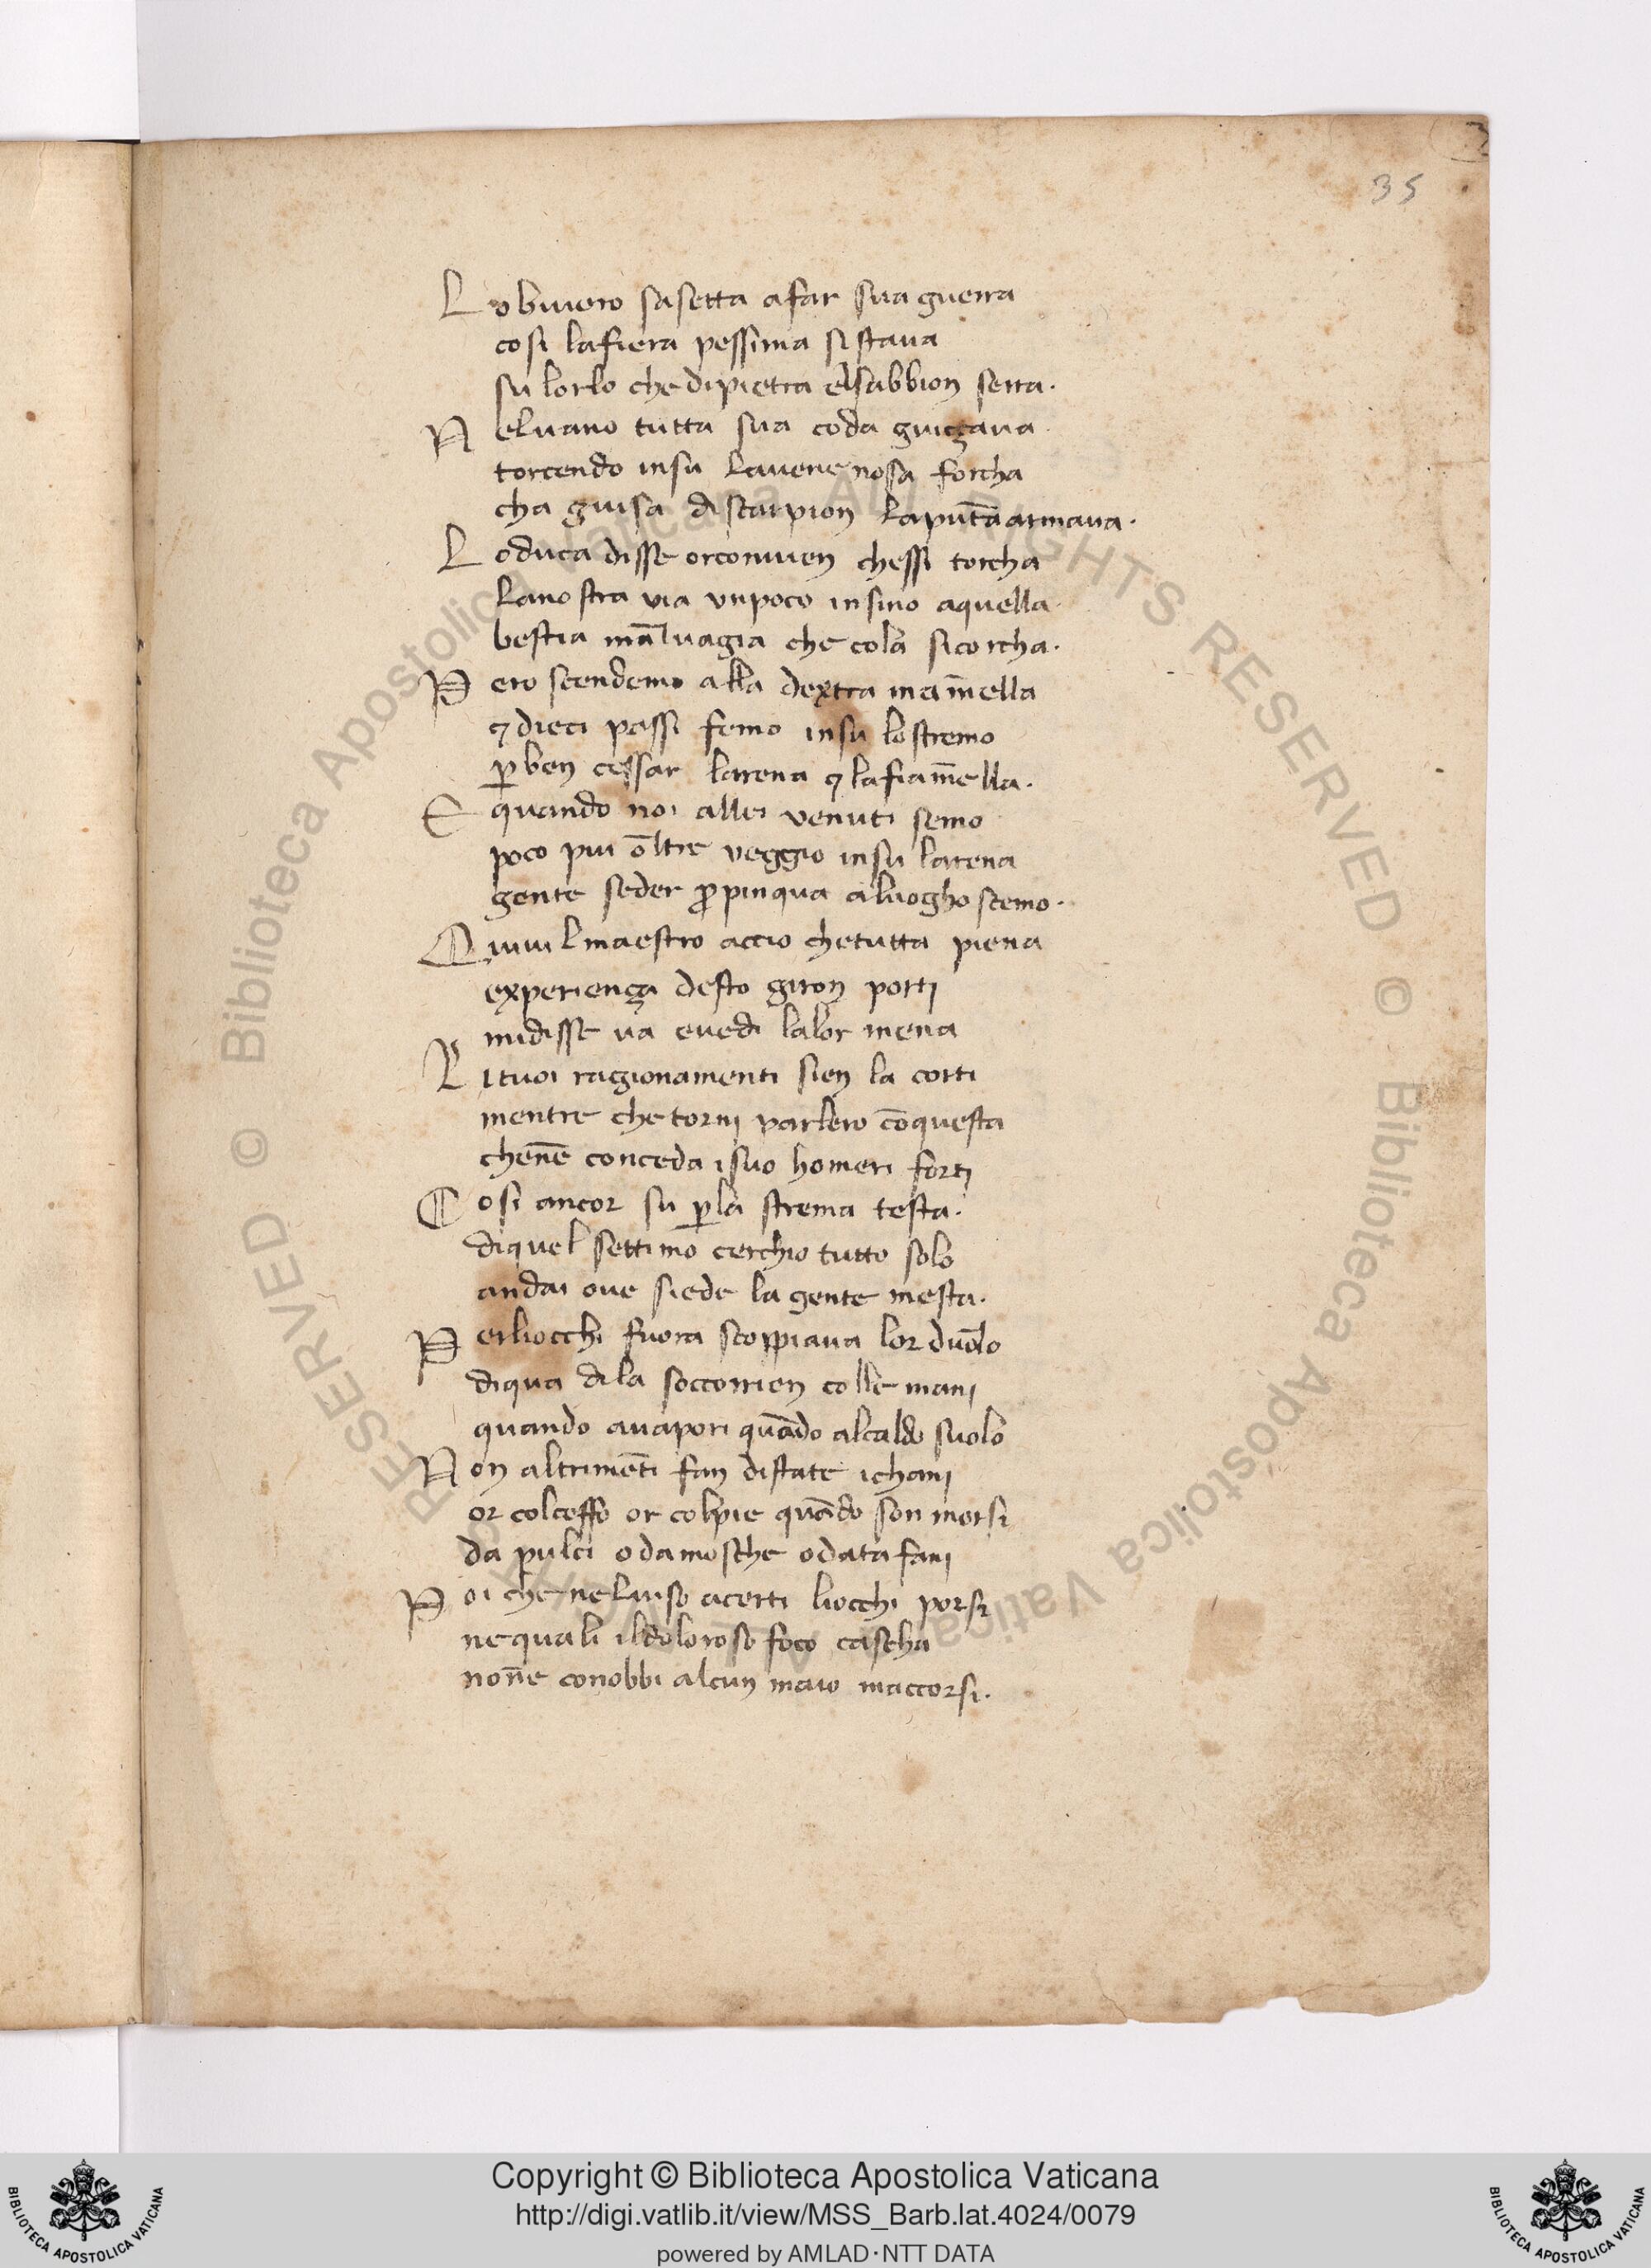 35
Lo biuero sasetta afar sua guerra
cosi lafiera pessima sistaua
su lorlo che dipietra elsabbion serra.
Neluano tutta sua coda guicçaua
torcendo insu lauenenosa forcha
cha guisa discarpion lapūtaarmaua.
Loduca disse orconuien chessi torcha
lanostra uia unpoco insino aquella
bestia maluagia che cola sicorcha.
Pero scendemo alla dextra mam̄ella
⁊ dieci passi femo insu lostremo
ꝑ ben cessar larena ⁊ lafiam̄ella.
E quando noi allei venuti semo
poco piu oltre veggio insu larena
gente seder ꝓpinqua aluogho scemo.
Quiui lmaestro accio chetutta piena
experiença desto giron portj
midisse ua euedi lalor mena
Li tuoi ragionamenti sien la corti
mentre che tornj parlero cōquesta
chen̄e conceda isuo homeri fortj
Cosi ancor su ꝑla strema testa.
diquel settimo cerchio tutto solo
andai oue siede la gente mesta.
Perliocchi fuora scoppiaua lor duolo
diqua dila soccorrien colle manj
quando auapori quādo alcaldo suolo
Non altrimēti fan distate ichanj
or colceffo or colpie quādo son morsi
da pulci odamosche odatafanj
Poi che neluiso acerti liocchi porsi
nequali ildoloroso foco cascha
non̄e conobbi alcun maio maccorsi.
BIBLIOTECA APOSTOLICA VATICANA
Copyright © Biblioteca Apostolica Vaticana
http://digi.vatlib.it/view/MSS_Barb.lat.4024/0079
powered by AMLAD·NTT DATA
BIBLIOTECA APOSTOLICA VATICANA
© Biblioteca Apostolica Vaticana ALL RIGHTS RESERVED © Biblioteca Apostolica Vaticana ALL RIGHTS RESERVED